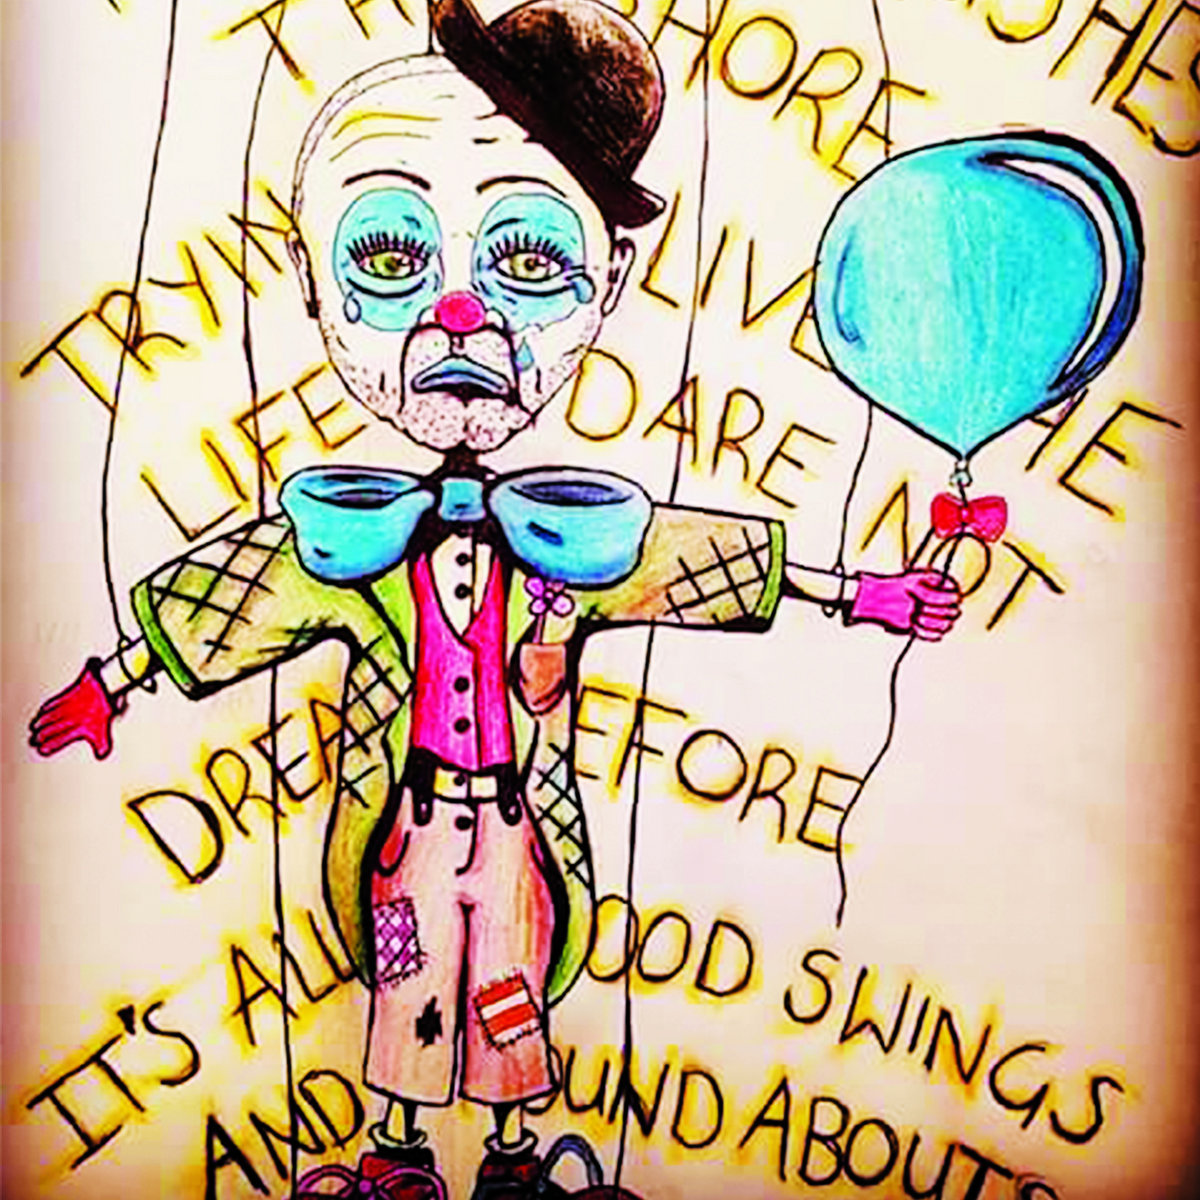 TH HORE SHES
TRYIN LIVE HE
LIFE DARE NOT
DREA EFORE
IT'S ALL OOD SWINGS
AND OUND ABOUTS